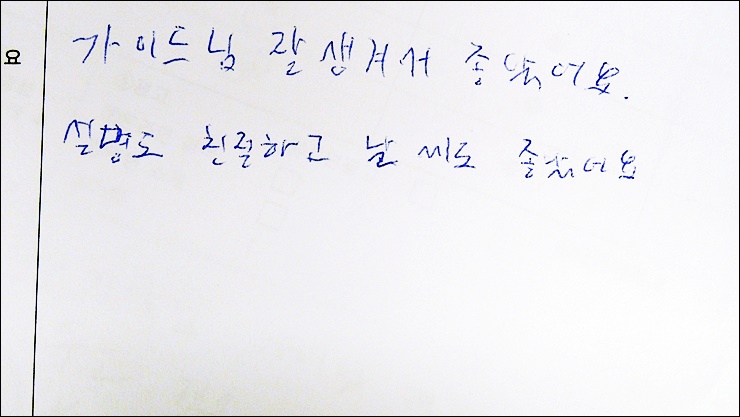 요
가이드님 잘 생겨서 좋았어요.
설명도 친절하고 날씨도 좋았어요